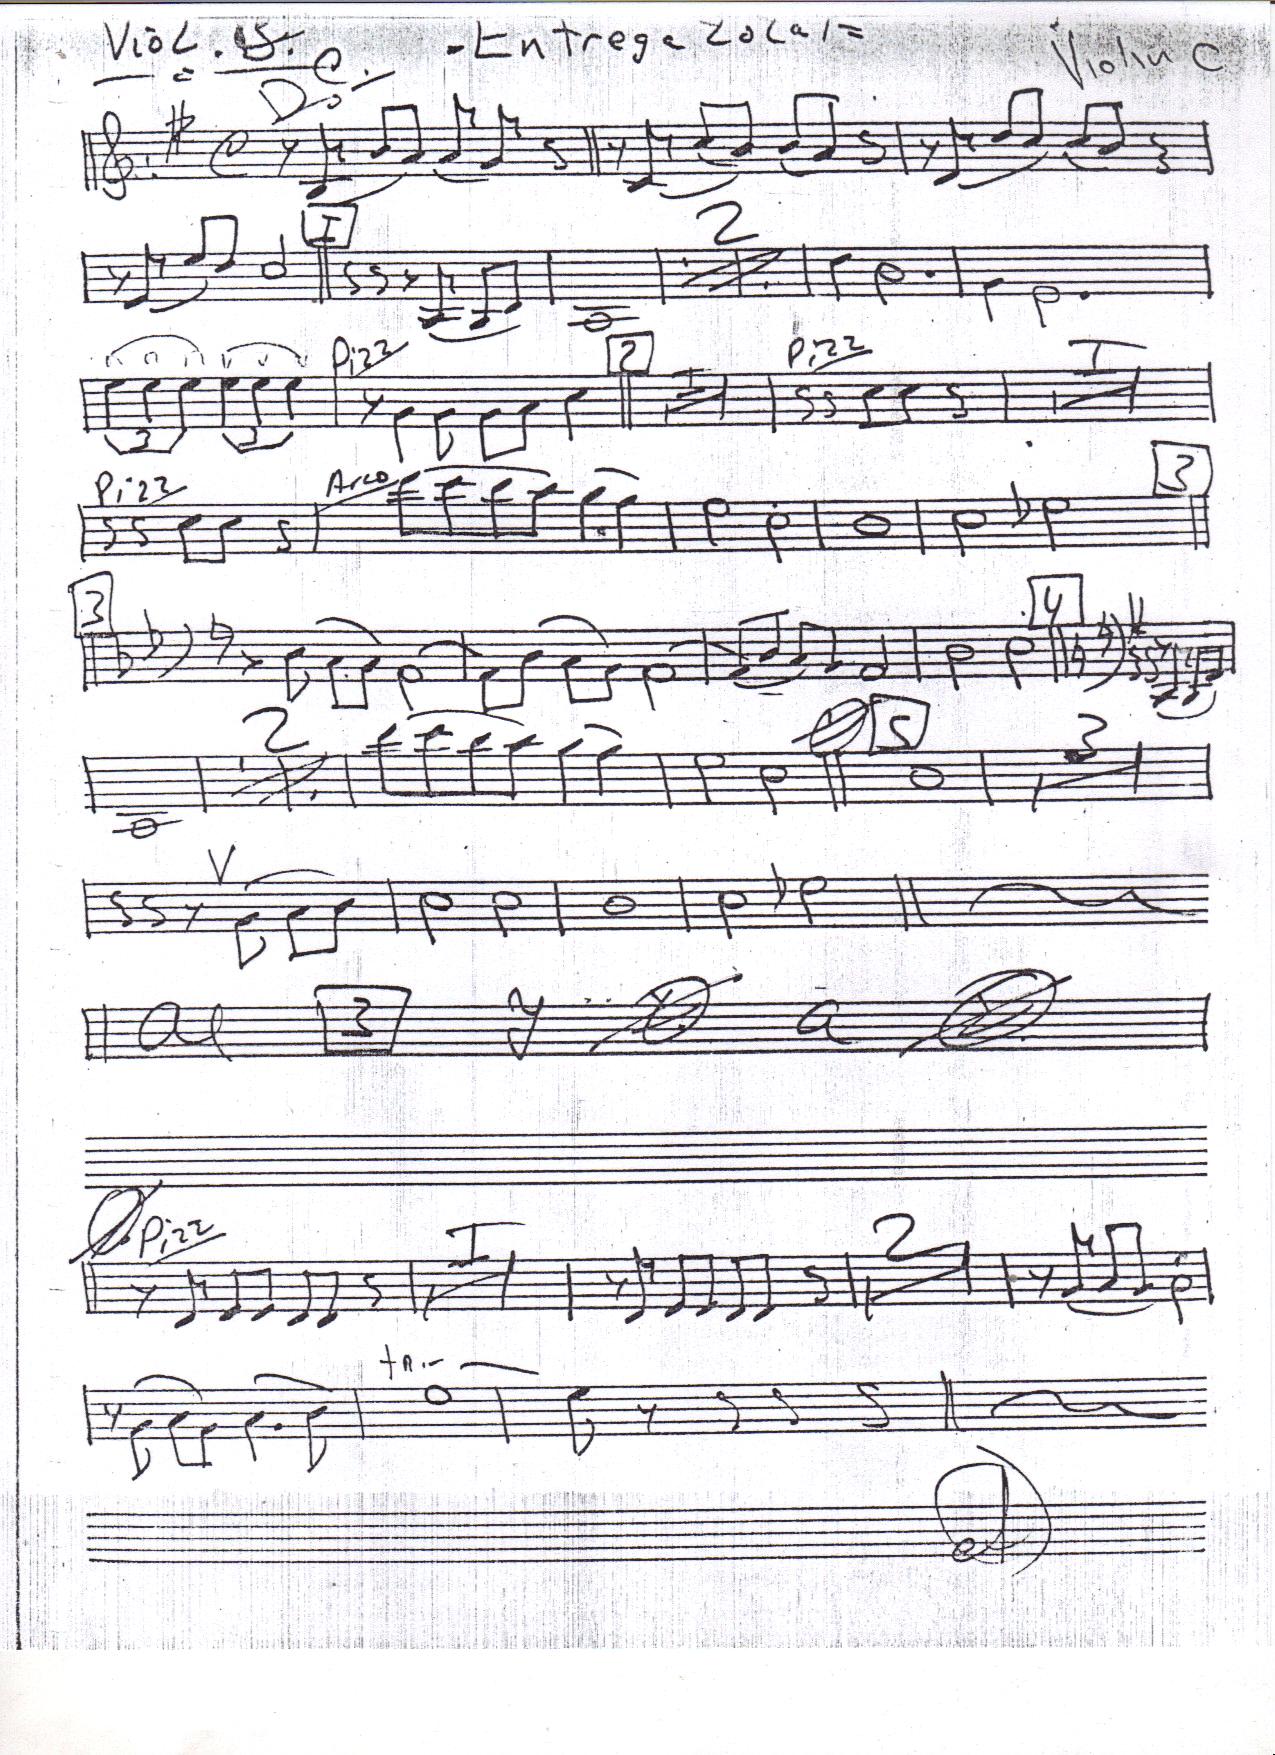 Viol. - Entrega Total = Violin C
Do.
I 2
Pizz 2 I Pizz I
3 3
Pizz Arco 3
3 4
2 5 3
V
al 3 y a
Pizz I 2
tr.